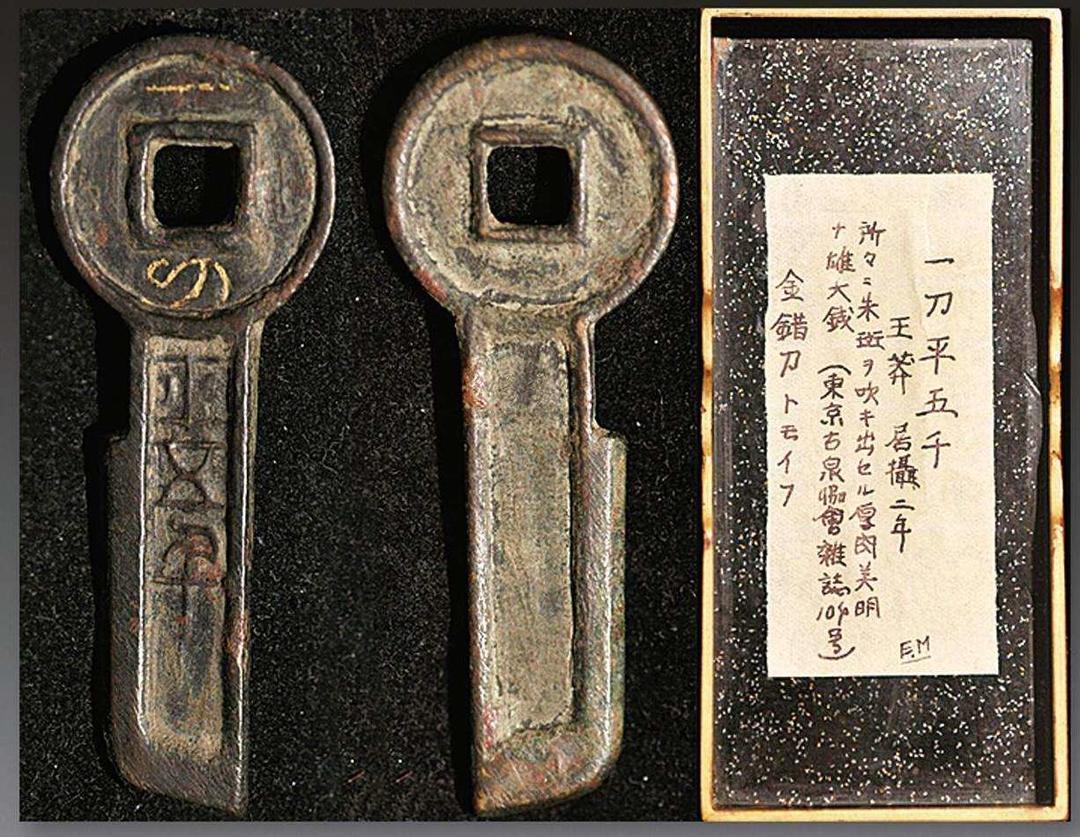 一刀
平五千
一刀平五千
王莽 居攝二年
所々ニ朱斑ヲ吹キ出セル厚肉美明
ナ雄大銭 (東京古泉協會雑誌104号)
金錯刀トモイフ
E.M